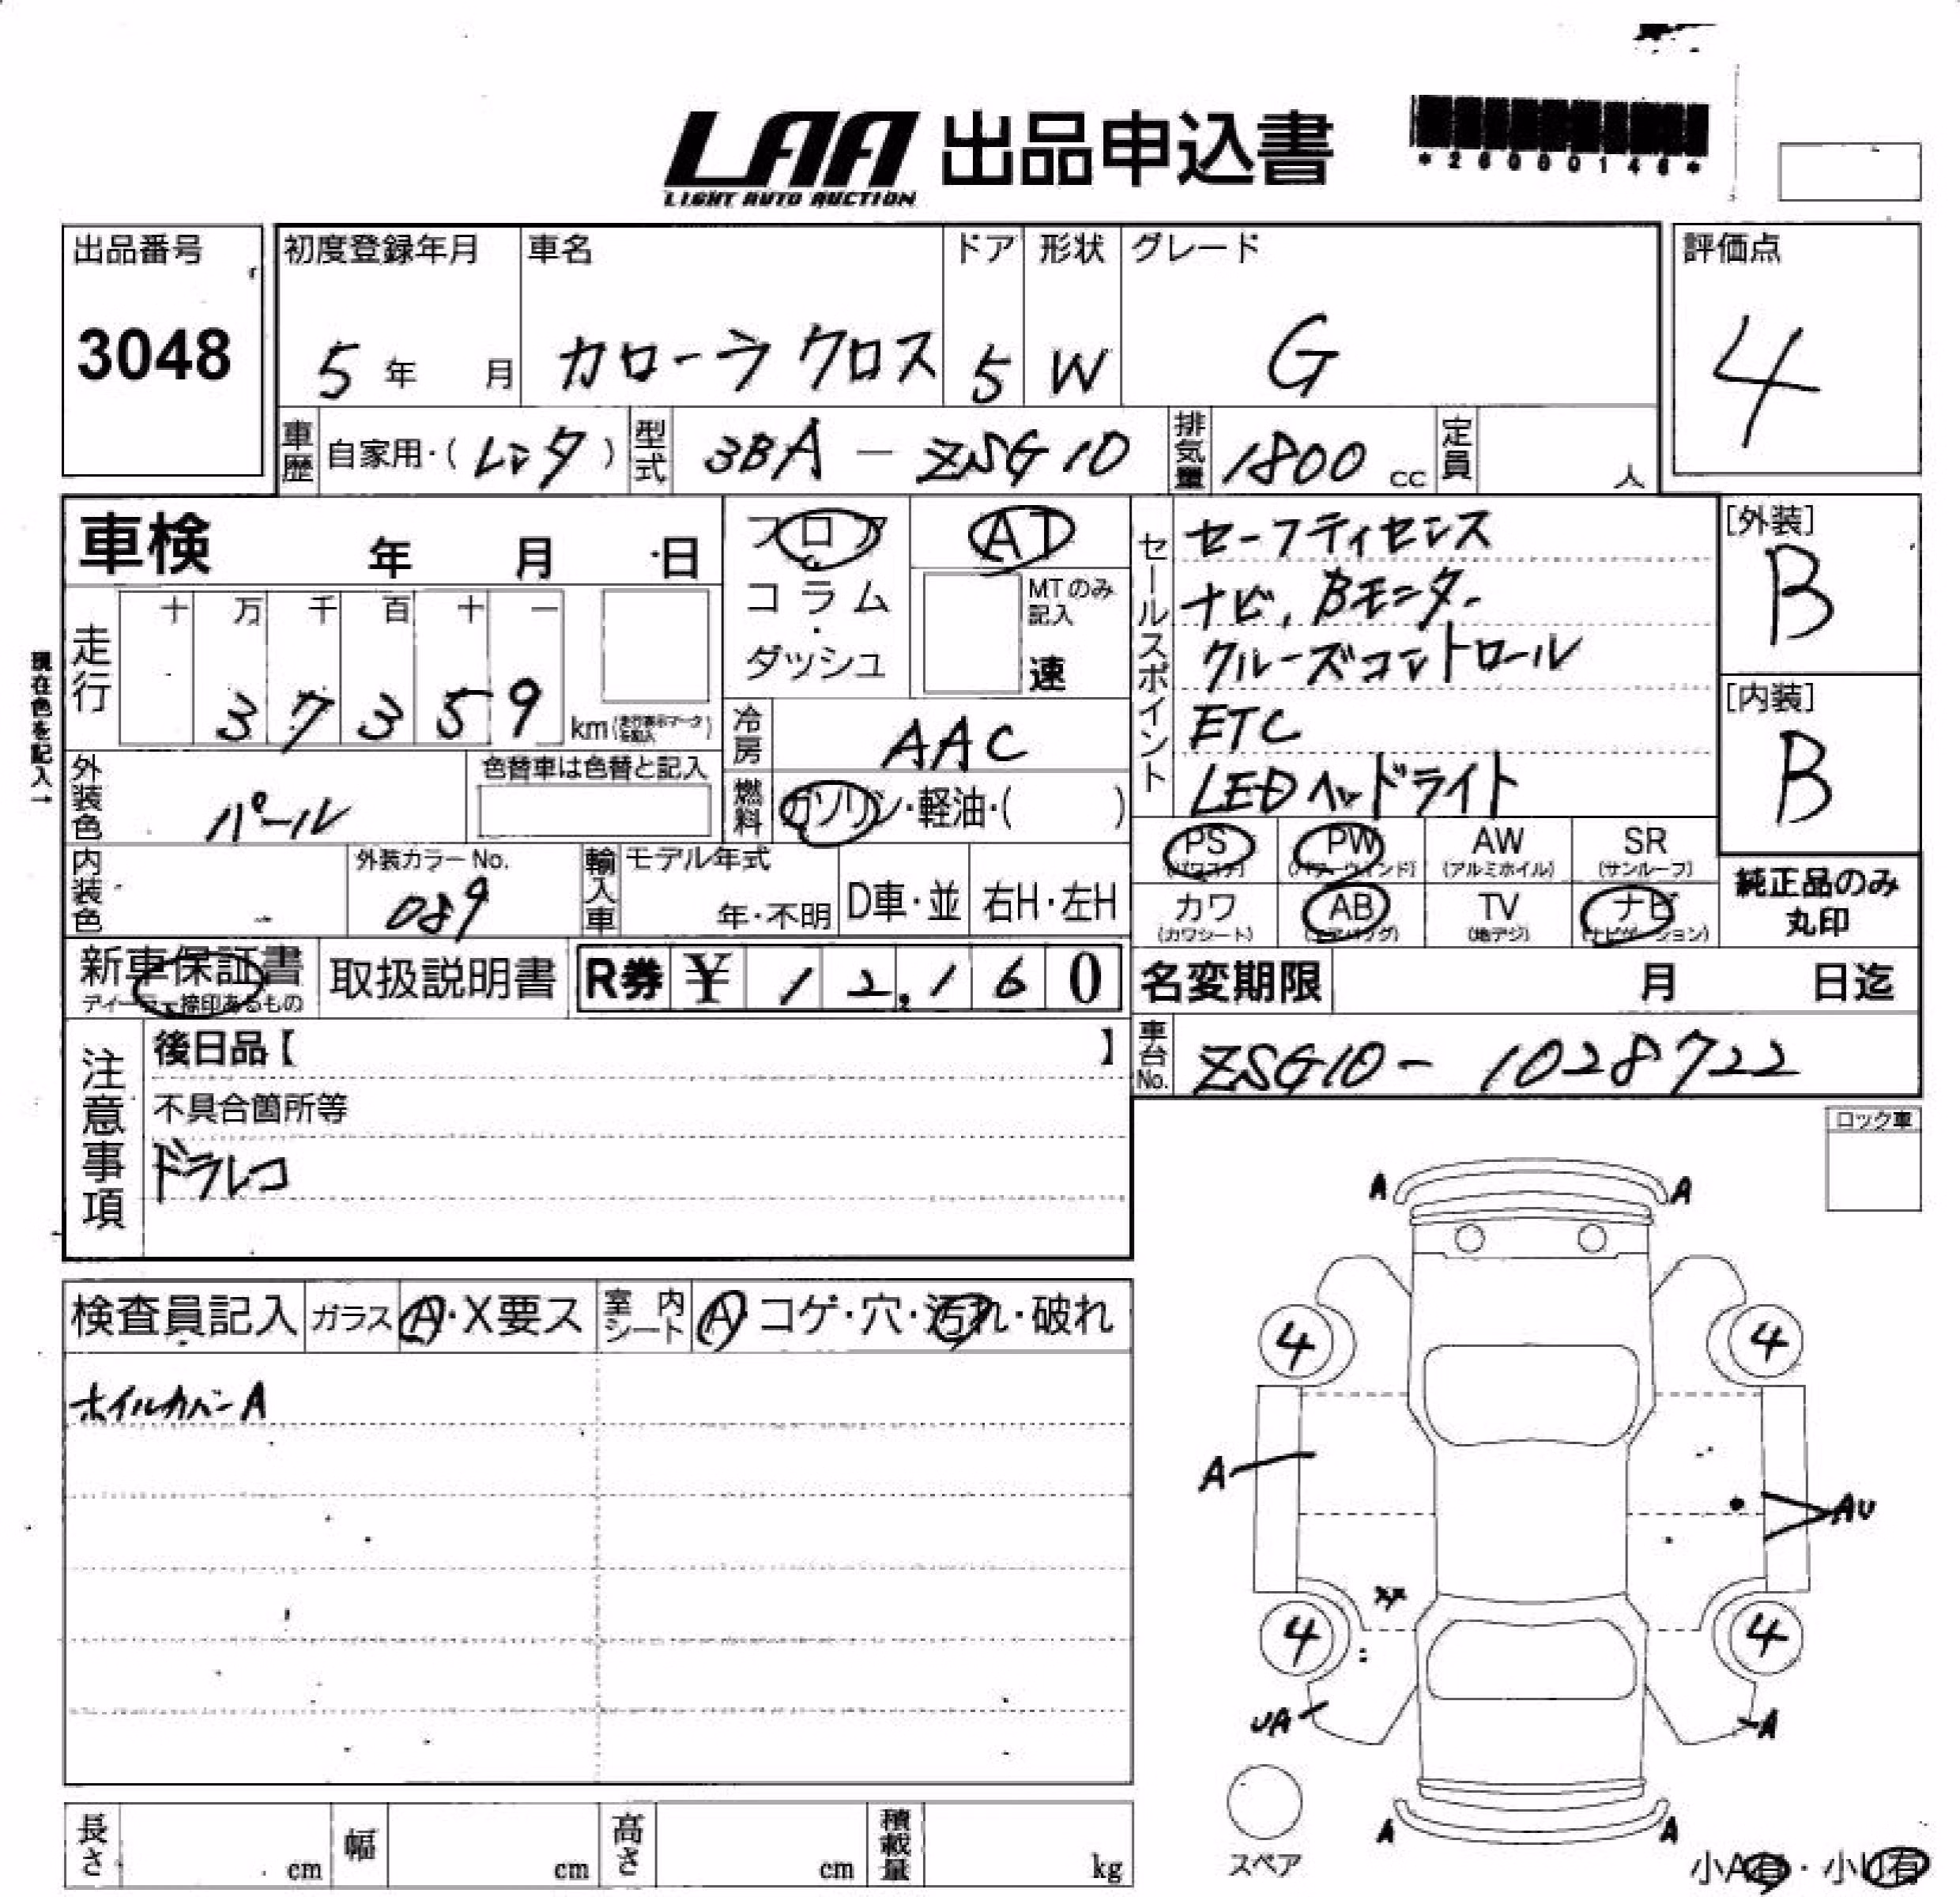 LAA 出品申込書
LIGHT AUTO AUCTION
*26080146*
出品番号
3048
初度登録年月 車名 ドア 形状 グレード
5年 月 カローラクロス 5 W G
評価点
4
車歴 自家用・(レンタ) 型式 3BA-ZSG10 排気量 1800cc 定員 人
車検 年 月 日
フロア
コラム
・
ダッシュ
AT
MTのみ記入
速
セールスポイント
セーフティセンス
ナビ、Bモニター
クルーズコントロール
ETC
LEDヘッドライト
[外装]
B
[内装]
B
現在色を記入→
走行 十 万 千 百 十 一
37359 km
冷房 AAC
外装色 パール 色替車は色替と記入
燃料 ガソリン・軽油・( )
PS AW SR
(パワステ) (アルミホイル) (サンルーフ)
PW
(パワーウインド)
カワ AB TV ナビ
(カワシート) (エアバッグ) (地デジ) (ナビゲーション)
純正品のみ
丸印
内装色 外装カラーNo. 089
輸入車 モデル年式 年・不明 D車・並 右H・左H
新車保証書 取扱説明書 R券 ¥12,160
ディーラー捺印あるもの
名変期限 月 日迄
車台No. ZSG10-1028722
注意事項
後日品【 】
不具合箇所等
ドラレコ
ロック車
検査員記入 ガラス A・X要ス 室内シート A・コゲ・穴・汚れ・破れ
ホイルカバーA
A A
4 4
A AU
4 4
UA A
A A
スペア
小A有・小U有
長さ cm 幅 cm 高さ cm 積載量 kg